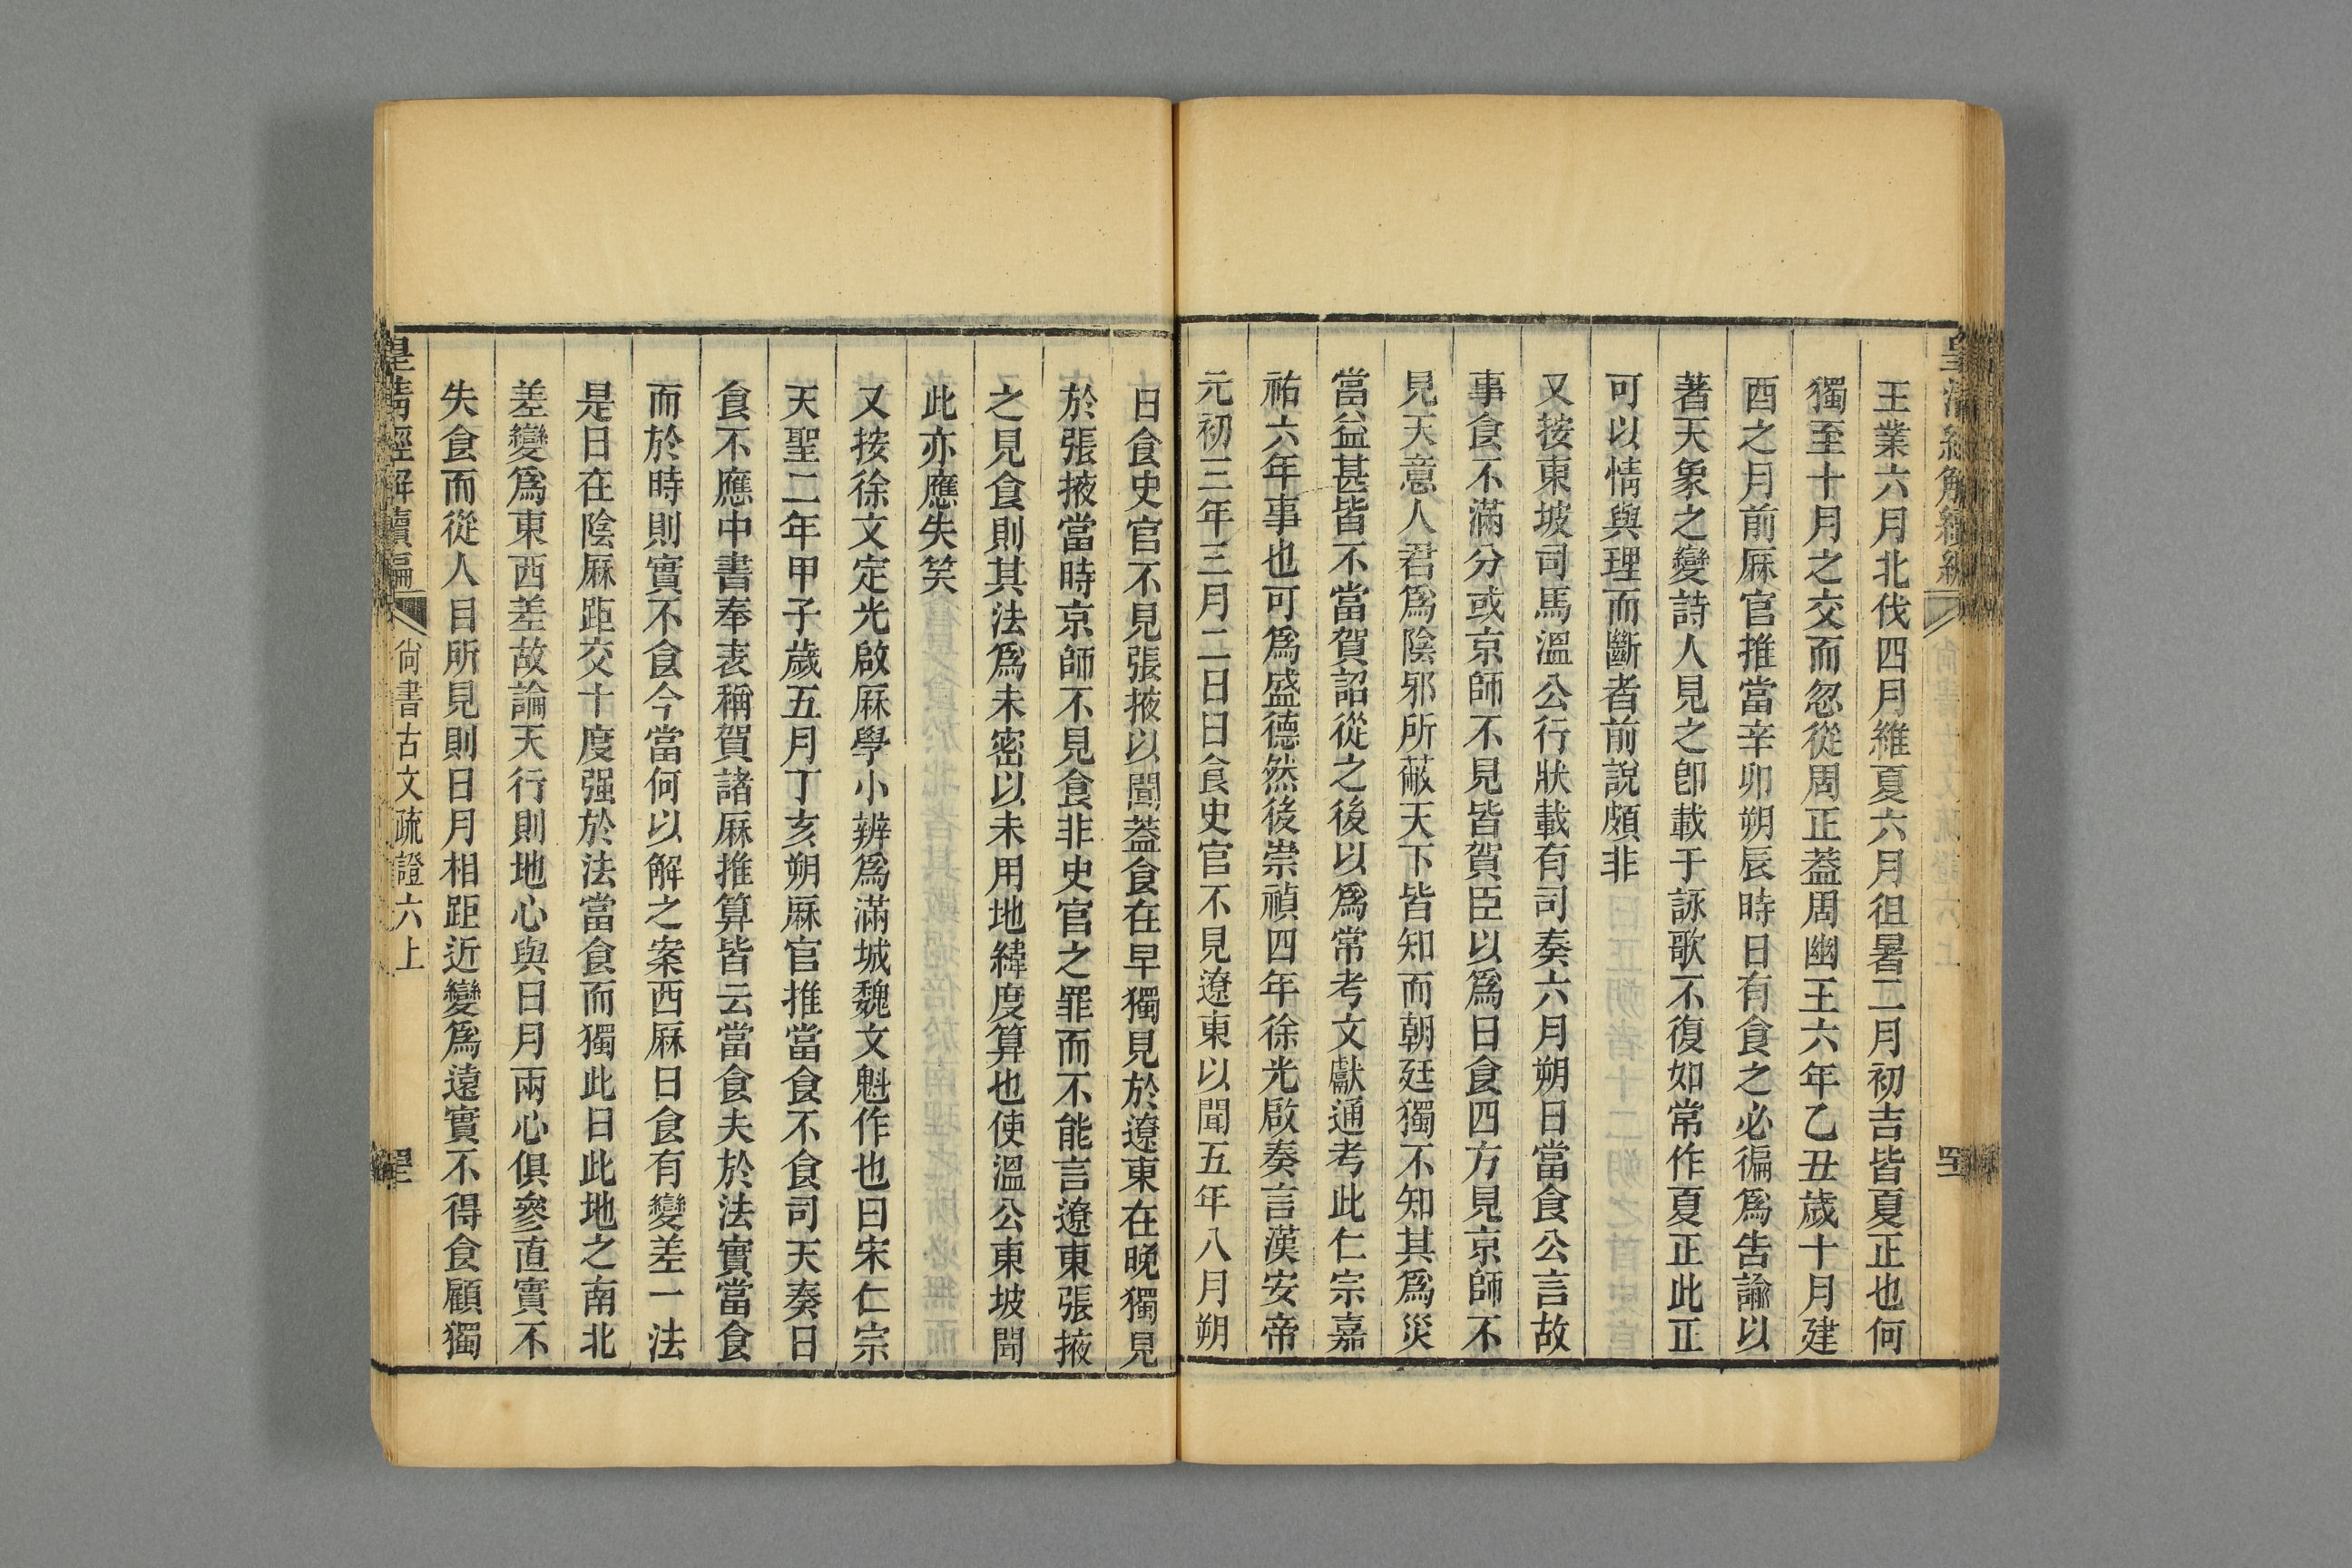 皇清經解續編
王業六月北伐四月維夏六月徂暑二月初吉皆夏正也何
獨至十月之交而忽從周正葢周幽王六年乙丑歲十月建
酉之月前厤官推當辛卯朔辰時日有食之必徧爲告諭以
著天象之變詩人見之卽載于詠歌不復如常作夏正此正
可以情與理而斷者前說頗非
又按東坡司馬溫公行狀載有司奏六月朔日當食公言故
事食不滿分或京師不見皆賀臣以爲日食四方見京師不
見天意人君爲陰邪所蔽天下皆知而朝廷獨不知其爲災
當益甚皆不當賀詔從之後以爲常考文獻通考此仁宗嘉
祐六年事也可爲盛德然後崇禎四年徐光啟奏言漢安帝
元初三年三月二日日食史官不見遼東以聞五年八月朔
日食史官不見張掖以聞葢食在早獨見於遼東在晚獨見
於張掖當時京師不見食非史官之罪而不能言遼東張掖
之見食則其法爲未密以未用地緯度算也使溫公東坡聞
此亦應失笑
又按徐文定光啟厤學小辨爲滿城魏文魁作也曰宋仁宗
天聖二年甲子歲五月丁亥朔厤官推當食不食司天奏日
食不應中書奉表稱賀諸厤推算皆云當食夫於法實當食
而於時則實不食今當何以解之案西厤日食有變差一法
是日在陰厤距交十度强於法當食而獨此日此地之南北
差變爲東西差故論天行則地心與日月兩心俱參直實不
失食而從人目所見則日月相距近變爲遠實不得食顧獨
皇清經解續編
尙書古文疏證六上